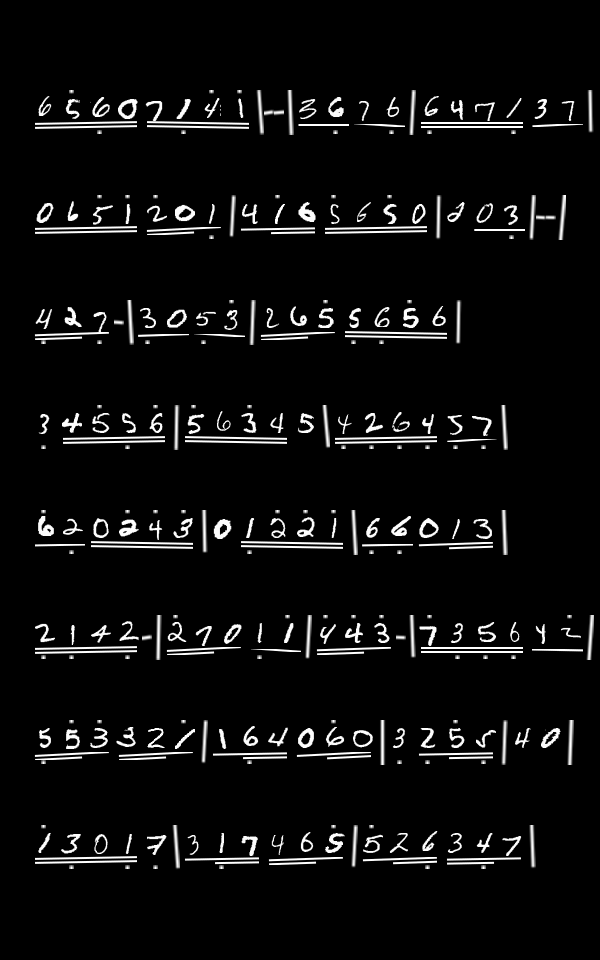 6 5 6 0 7 1 4 1 | - - | 3 6 7 6 | 6 4 7 1 3 7 |
0 6 5 1 2 0 1 | 4 1 6 5 6 5 0 | 2 0 3 | - - |
4 2 7 - | 3 0 5 3 | 2 6 5 5 6 5 6 |
3 4 5 5 6 | 5 6 3 4 5 | 4 2 6 4 5 7 |
6 2 0 2 4 3 | 0 1 2 2 1 | 6 6 0 1 3 |
2 1 4 2 - | 2 7 0 1 1 | 4 4 3 - | 7 3 5 6 4 2 |
5 5 3 3 2 1 | 1 6 4 0 6 0 | 3 2 5 5 | 4 0 |
1 3 0 1 7 | 3 1 7 4 6 5 | 5 2 6 3 4 7 |